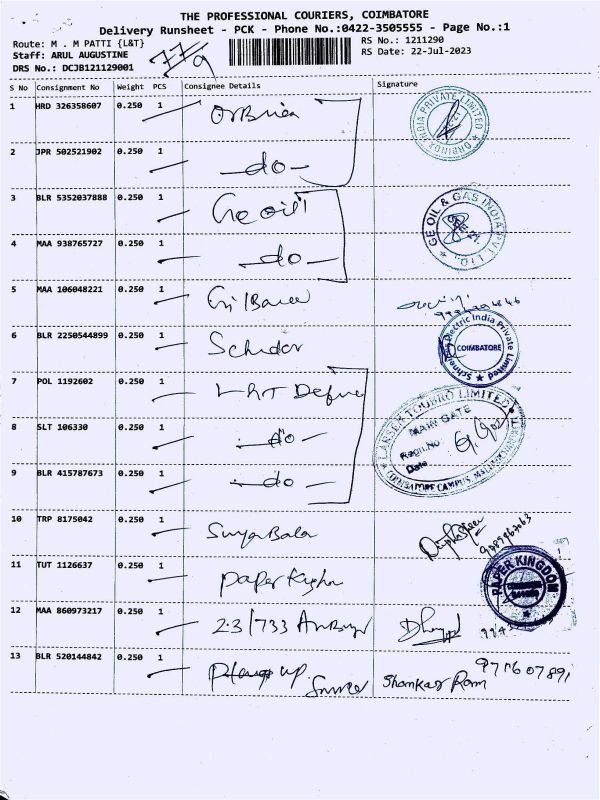 THE PROFESSIONAL COURIERS, COIMBATORE
Delivery Runsheet - PCK - Phone No.:0422-3505555 - Page No.:1
Route: M . M PATTI {L&T}
RS No.: 1211290
Staff: ARUL AUGUSTINE
RS Date: 22-Jul-2023
DRS No.: DCJB121129001
S No Consignment No Weight PCS Consignee Details Signature
1 HRD 326358607 0.250 1
INDIA PRIVATE LIMITED
2 JPR 502521902 0.250 1 -do-
3 BLR 5352037888 0.250 1 Ge oil
GE OIL & GAS INDIA PVT. LTD.
4 MAA 938765727 0.250 1 -do-
5 MAA 106048221 0.250 1
6 BLR 2250544899 0.250 1
Schneider Electric India Private Limited
COIMBATORE
7 POL 1192602 0.250 1 L&T Define
LARSEN TOUBRO LIMITED
MAIN GATE
Regn.No
Date
COIMBATORE CAMPUS,
8 SLT 106330 0.250 1 -do-
9 BLR 415787673 0.250 1 -do-
10 TRP 8175042 0.250 1 Surya Bala
11 TUT 1126637 0.250 1 paper
PAPER KINGDOM
12 MAA 860973217 0.250 1 2-3/733
13 BLR 520144842 0.250 1 Shankar Ram